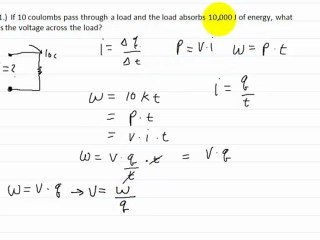 1.) If 10 coulombs pass through a load and the load absorbs 10,000 J of energy, what
is the voltage across the load?
10c
i = Δq / Δt    P = V·i    W = P·t
i = ?
i = q / t
W = 10 k J
= P·t
= V·i·t
W = V·q/t·t = V·q
W = V·q → V = W / q